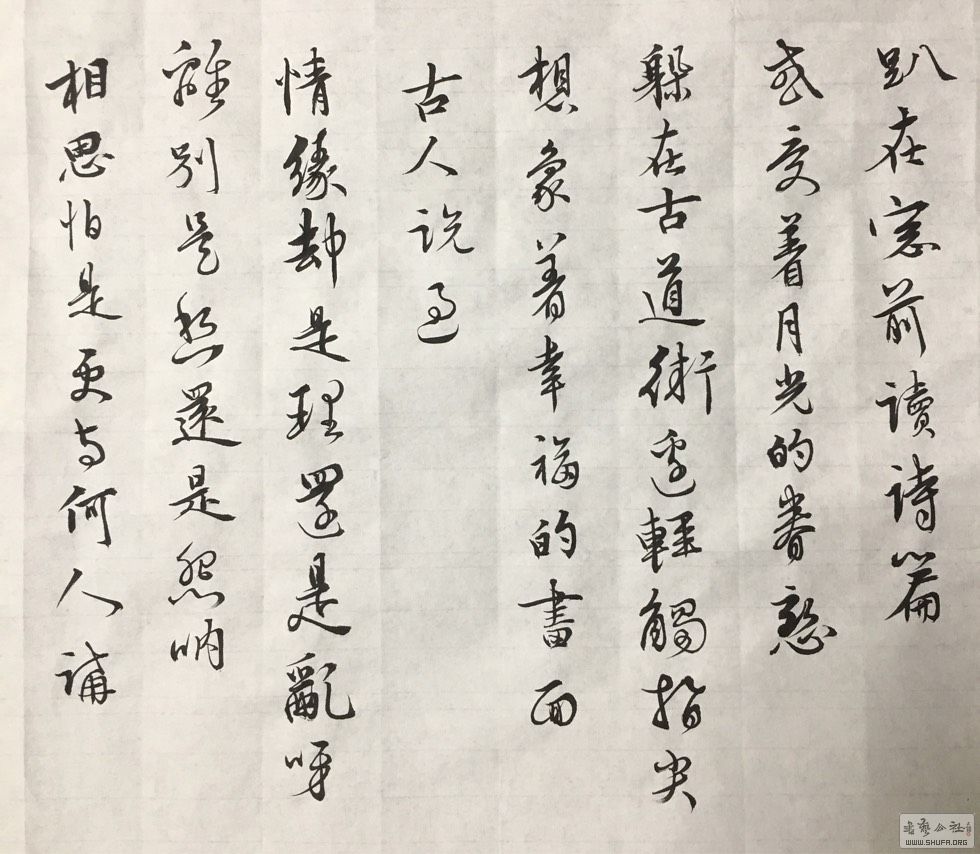 趴在窓前讀詩篇
感受着月光的眷戀
躲在古道街邊輕觸指尖
想象着幸福的畫面
古人説過
情緣劫是理還是亂呀
離別是愁還是怨呐
相思怕是更与何人講
書藝公社
WWW.SHUFA.ORG